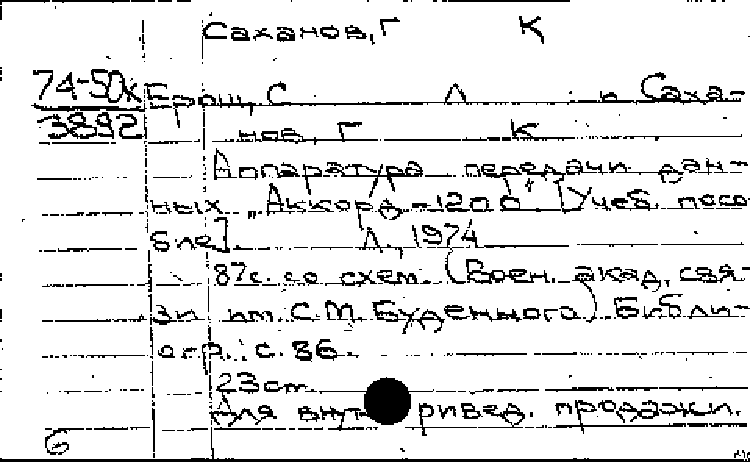 Саханов, Г К
74-50к Ерош, С Л и Саха-
3892 нов, Г К
Аппаратура передачи дан-
ных „Аккорд-1200". [Учеб. посо
бие]. Л., 1974
87с. со схем. (Воен. акад. свя-
зи им. С.М. Буденного) Библи-
огр.: с. 86.
23см.
Для внут ривед. продажи.
6